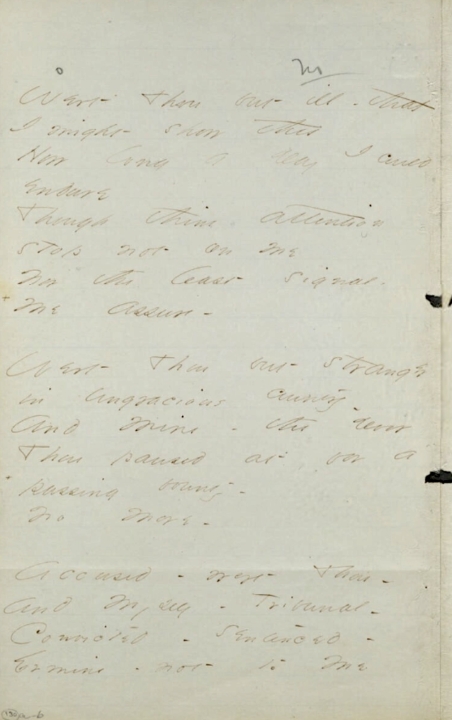 Wert Thou but ill - that
I might show thee
How long a Day I could
Endure
Though thine attention
stop not on me
Nor the least signal -
+ Me Assure -
Wert Thou but Stranger
in ungracious country -
And Mine - the Door
Thou paused at - for a
passing bounty -
No More -
Accused - wert Thou -
And Myself - Tribunal -
Convicted - Sentenced -
Ermine - not to Me